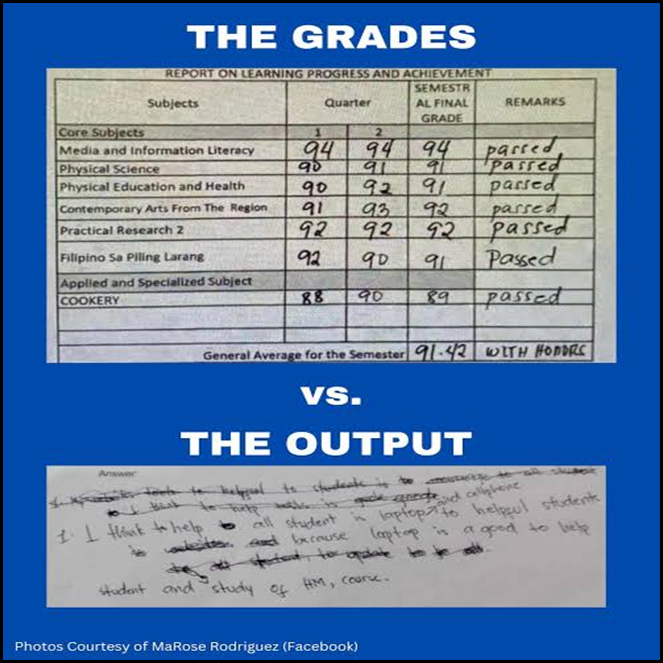 THE GRADES
REPORT ON LEARNING PROGRESS AND ACHIEVEMENT
Subjects Quarter SEMESTR AL FINAL GRADE REMARKS
Core Subjects 1 2
Media and Information Literacy 94 94 94 passed
Physical Science 90 91 91 passed
Physical Education and Health 90 92 91 passed
Contemporary Arts From The Region 91 93 92 passed
Practical Research 2 92 92 92 passed
Filipino Sa Piling Larang 92 90 91 Passed
Applied and Specialized Subject
COOKERY 88 90 89 passed
General Average for the Semester 91.42 WITH HONORS
vs.
THE OUTPUT
Answer:
and cellphone
1. I think to help all student is laptop to helpgul students
because laptop is a good to help
student and study of HM, course.
Photos Courtesy of MaRose Rodriguez (Facebook)